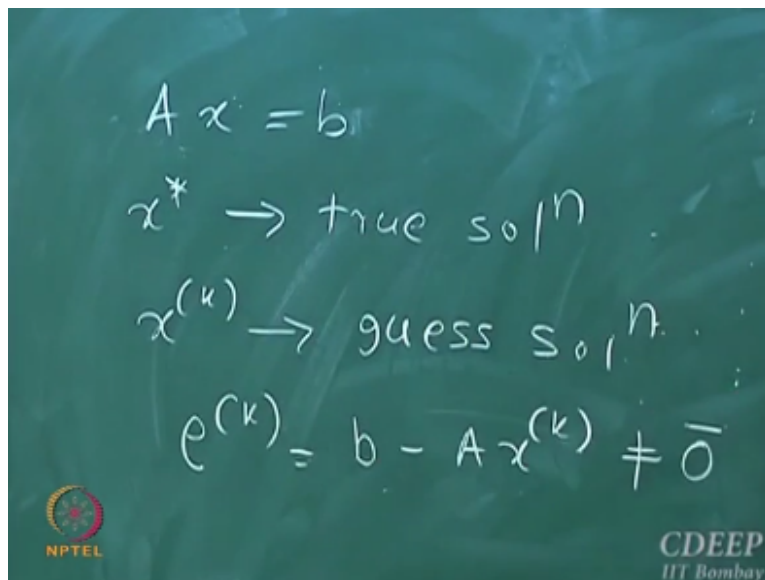 A x = b
x* → true solⁿ
x⁽ᵏ⁾ → guess solⁿ.
e⁽ᵏ⁾ = b - A x⁽ᵏ⁾ ≠ 0̄
NPTEL
CDEEP
IIT Bombay